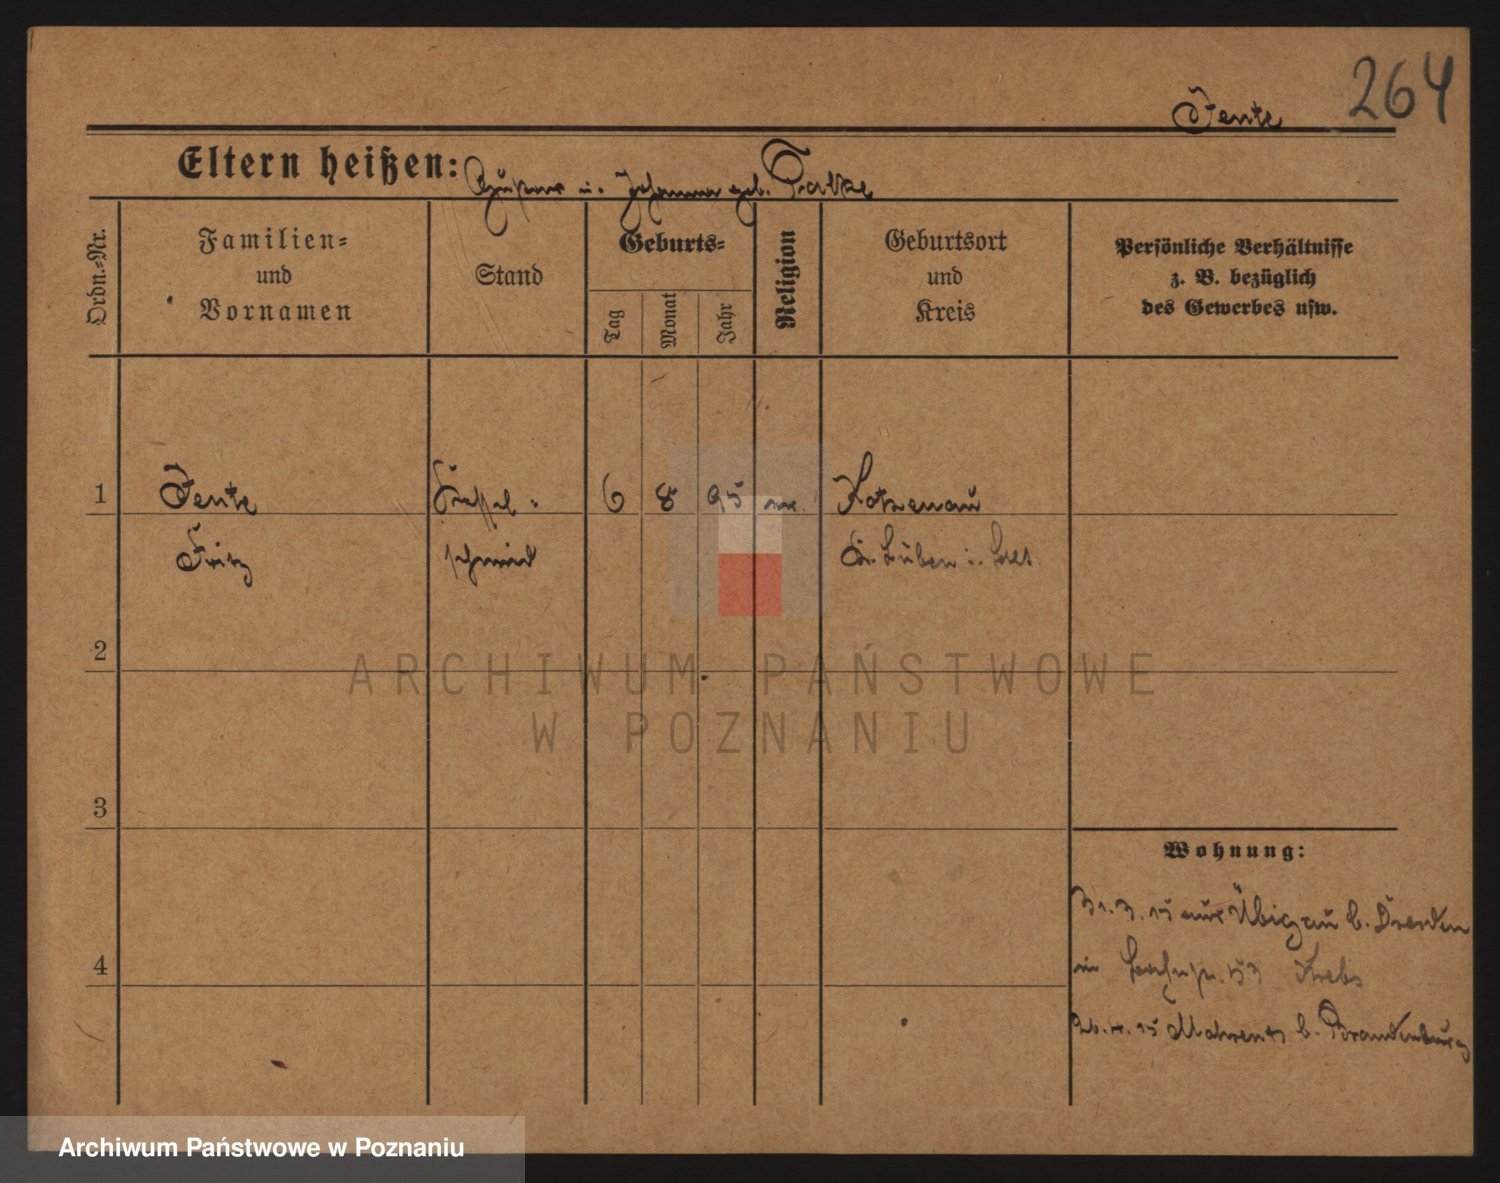 264
Jente
Eltern heißen: Gustav u. Johanna geb.
Ordn.-Nr.
Familien-
und
Vornamen
Stand
Geburts-
Tag
Monat
Jahr
Religion
Geburtsort
und
Kreis
Persönliche Verhältnisse
z. B. bezüglich
des Gewerbes usw.
1
Jente
Kessel-
6
8
95
ev.
Kotzenau
Fritz
schmied
Kr. Lüben i. Schles
2
3
4
Wohnung:
31.3.15 aus Übigau b. Dresden
53 Krebs
b. Brandenburg
ARCHIWUM PAŃSTWOWE
W POZNANIU
Archiwum Państwowe w Poznaniu